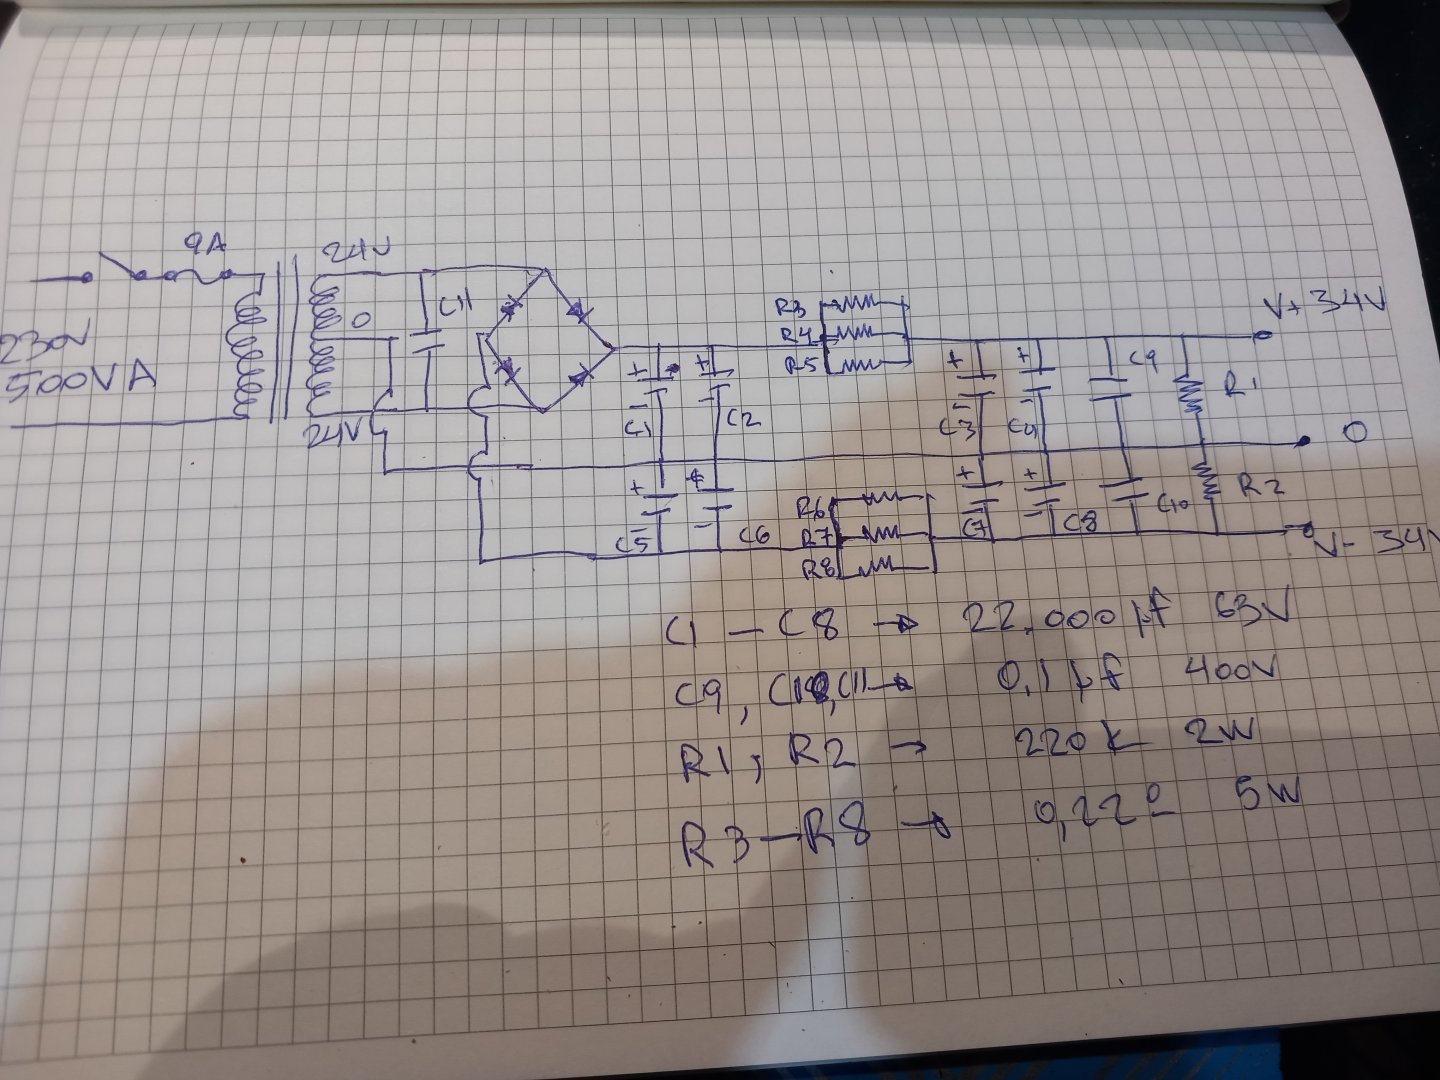 9A
24V
230V
500VA
0
C11
24V
R3
R4
R5
V+ 34V
+
+
C1
C2
+
+
C3
C4
C9
R1
0
+
+
C5
C6
R6
R7
R8
+
+
C7
C8
C10
R2
V- 34V
C1 — C8 → 22.000 µf 63V
C9, C10, C11 → 0,1 µf 400V
R1, R2 → 220k 2W
R3 — R8 → 0,22Ω 5W